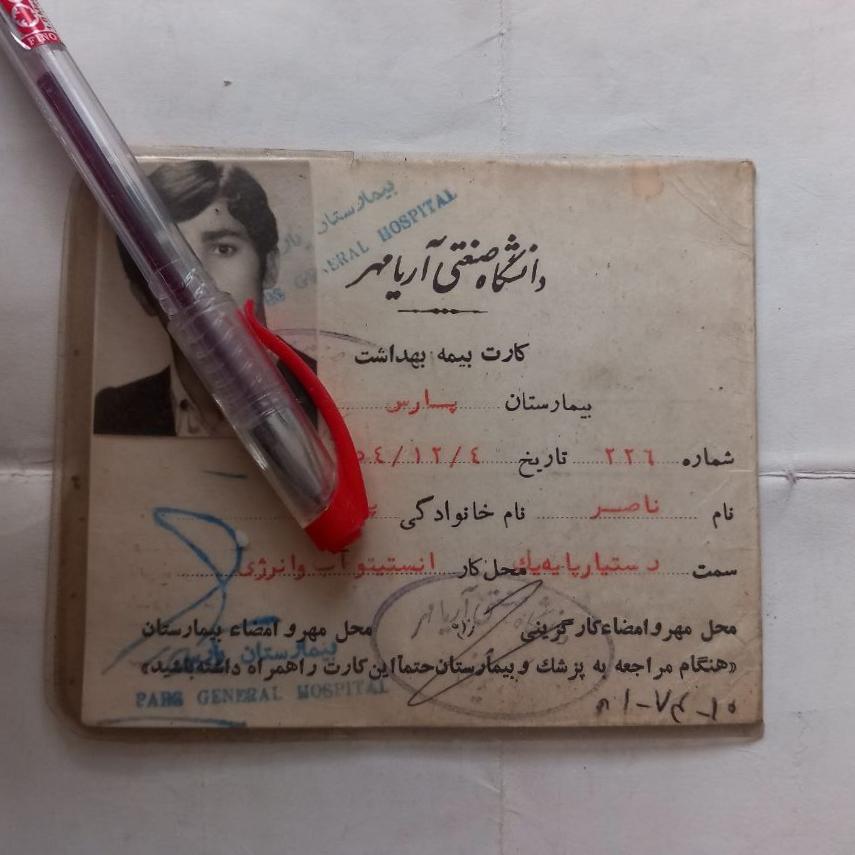 بیمارستان پارس
PARS GENERAL HOSPITAL
دانشگاه صنعتی آریامهر
کارت بیمه بهداشت
بیمارستان پارس
شماره ۲۲٦ تاریخ ٤/۱۲/٥٤
نام ناصر نام خانوادگی
سمت دستیار پایه یک محل کار انستیتو آب وانرژی
محل مهر و امضاء کارگزینی محل مهر و امضاء بیمارستان
بیمارستان پارس
«هنگام مراجعه به پزشک و بیمارستان حتماً این کارت را همراه داشته باشید»
PARS GENERAL HOSPITAL